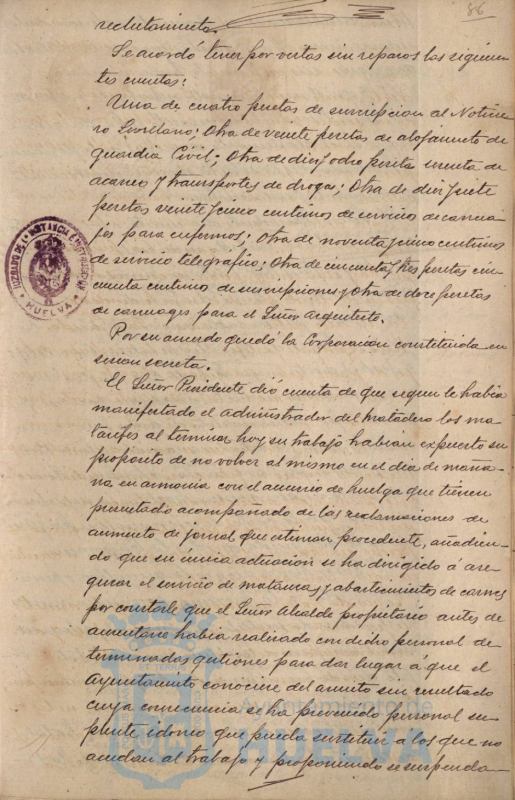 86
reclutamiento.
Se acordó tener por vistas sin reparos las siguien-
tes cuentas:
Una de cuatro pesetas de suscripcion al Noticie-
ro Sevillano; Otra de veinte pesetas de alojamiento de
guardia Civil; Otra de diez y ocho pesetas cuenta de
acarreo y transportes de drogas; Otra de diez y siete
pesetas veinte y cinco centimos de servicio de carrua-
jes para enfermos; Otra de noventa y cinco centimos
de servicio telegrafico; Otra de cincuenta y tres pesetas cin-
cuenta centimos de suscripciones y otra de doce pesetas
de carruages para el Señor Arquitecto.
Por su acuerdo quedó la Corporacion constituida en
sesion secreta.
El Señor Presidente dió cuenta de que segun le habia
manifestado el administrador del matadero los ma-
tarifes al terminar hoy su trabajo habian expuesto su
propósito de no volver al mismo en el dia de maña-
na en armonia con el anuncio de huelga que tienen
presentado acompañado de las reclamaciones de
aumento de jornal que estiman procedente, añadien-
do que su única actuacion se ha dirigido á ase-
gurar el servicio de matanza y abastecimientos de carnes
por constarle que el Señor Alcalde propietario antes de
ausentarse habia realizado con dicho personal de-
terminadas gestiones para dar lugar á que el
Ayuntamiento conociese del asunto sin resultado
cuya consecuencia se ha prevenido personal su-
plente idoneo que pueda sustituir a los que no
acudan al trabajo y proponiendo se suspenda
JUZGADO DE 1ª INSTANCIA É INSTRUCCION
HUELVA
Ayuntamiento de
HUELVA